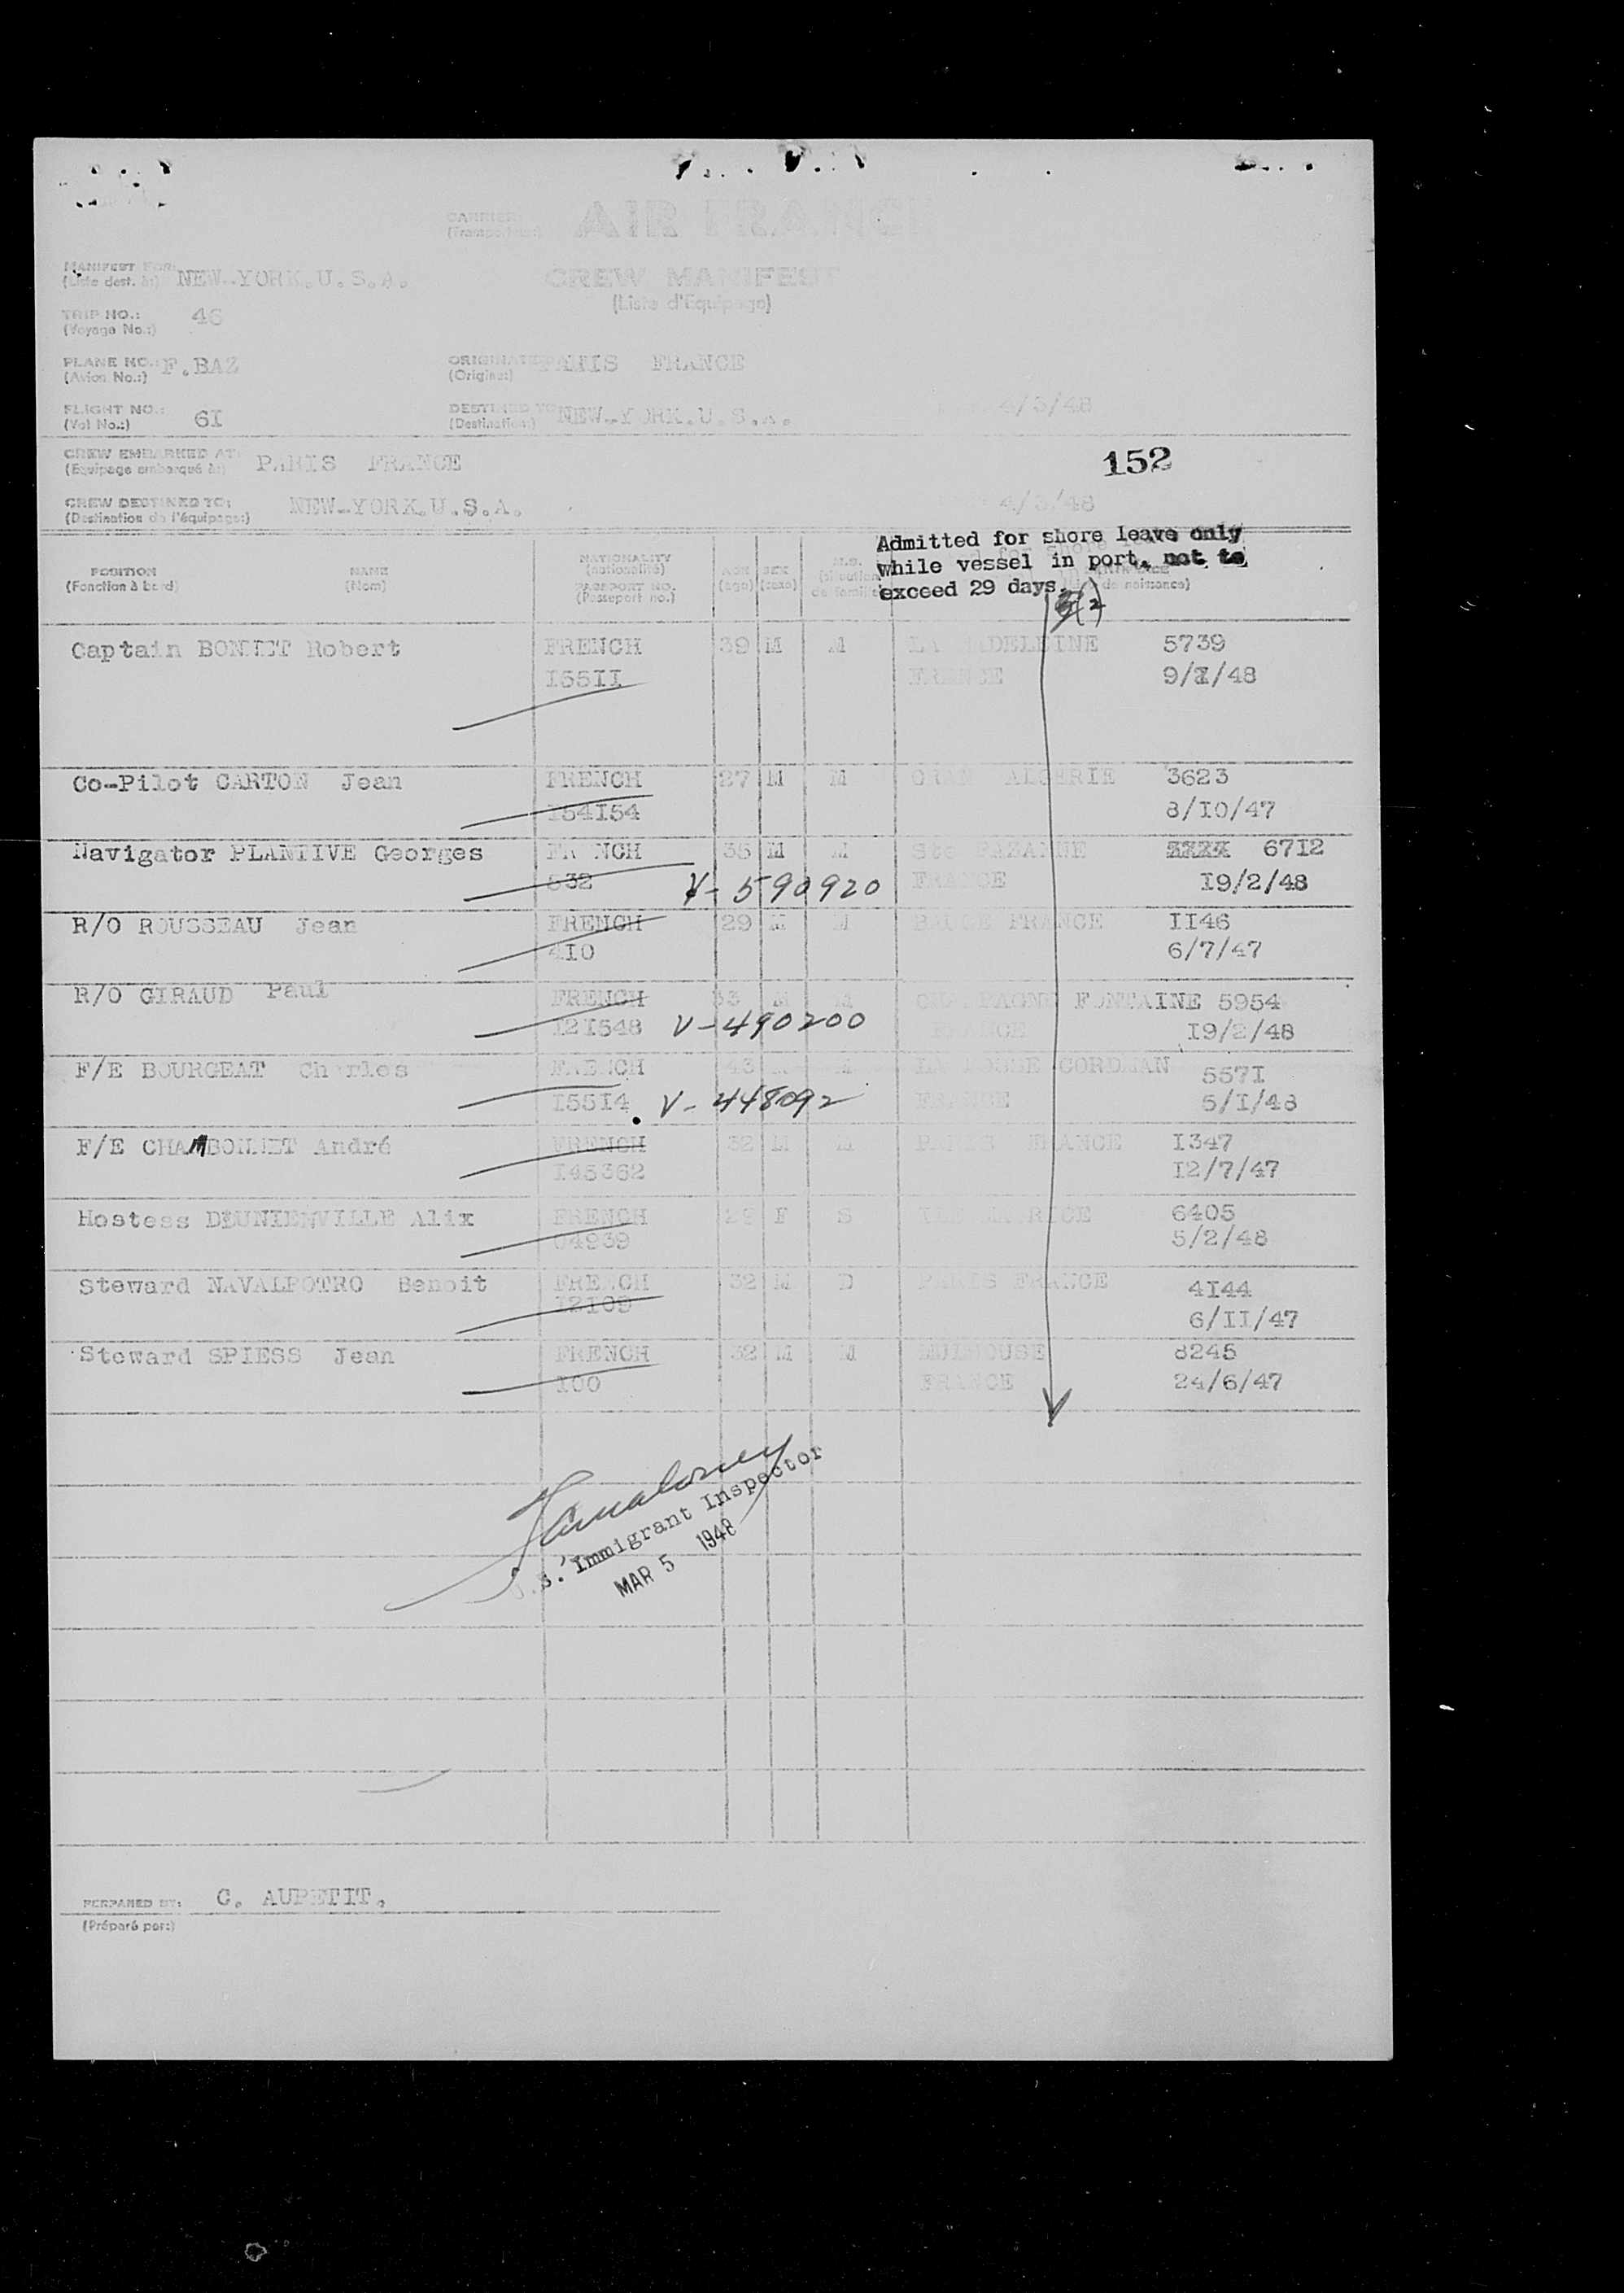 CARRIER: AIR FRANCE
(Transporteur:)
MANIFEST FOR: NEW-YORK.U.S.A.
(Liste dest. à:)
CREW MANIFEST
(Liste d'Equipage)
TRIP NO.: 46
(Voyage No.:)
PLANE NO.: F.BAZ
(Avion No.:)
ORIGINATE PARIS FRANCE
(Origine:)
FLIGHT NO.: 6I
(Vol No.:)
DESTINED TO NEW-YORK.U.S.A. 4/3/48
(Destination:)
CREW EMBARKED AT: PARIS FRANCE
(Equipage embarqué à:)
152
CREW DESTINED TO: NEW-YORK.U.S.A. 4/3/48
(Destination de l'équipage:)
Admitted for shore leave only
while vessel in port, not to
exceed 29 days.
POSITION NAME NATIONALITY AGE SEX M.S.
(Fonction à bord) (Nom) (nationalité) (age) (sexe) (situation de famille) de naissance)
PASSPORT NO.
(Passeport no.)
Captain BONNET Robert FRENCH 39 M M LA MADELEINE 5739
I65II FRANCE 9/I/48
Co-Pilot CARTON Jean FRENCH 27 M M ORAN ALGERIE 3623
I54I54 8/I0/47
Navigator PLANTIVE Georges FRENCH 35 M M Ste PAZANNE 67I2
632 V-590920 FRANCE I9/2/48
R/O ROUSSEAU Jean FRENCH 29 M M FRANCE II46
4I0 6/7/47
R/O GIRAUD Paul FRENCH 33 M M CHAMPAGNE FONTAINE 5954
I2I548 V-490200 FRANCE I9/2/48
F/E BOURGEAT Charles FRENCH 43 M M CORDNAN 557I
I55I4 V-448092 FRANCE 5/I/48
F/E CHAMBONNET André FRENCH 32 M M PARIS FRANCE I347
I45362 I2/7/47
Hostess DEUNIENVILLE Alix FRENCH 29 F S 6405
04939 5/2/48
Steward NAVALPOTRO Benoit FRENCH 32 M D PARIS FRANCE 4I44
I2I09 6/II/47
Steward SPIESS Jean FRENCH 32 M M MULHOUSE 8245
I00 FRANCE 24/6/47
.S. Immigrant Inspector
MAR 5 1948
PREPARED BY: G. AUPETIT.
(Préparé par:)